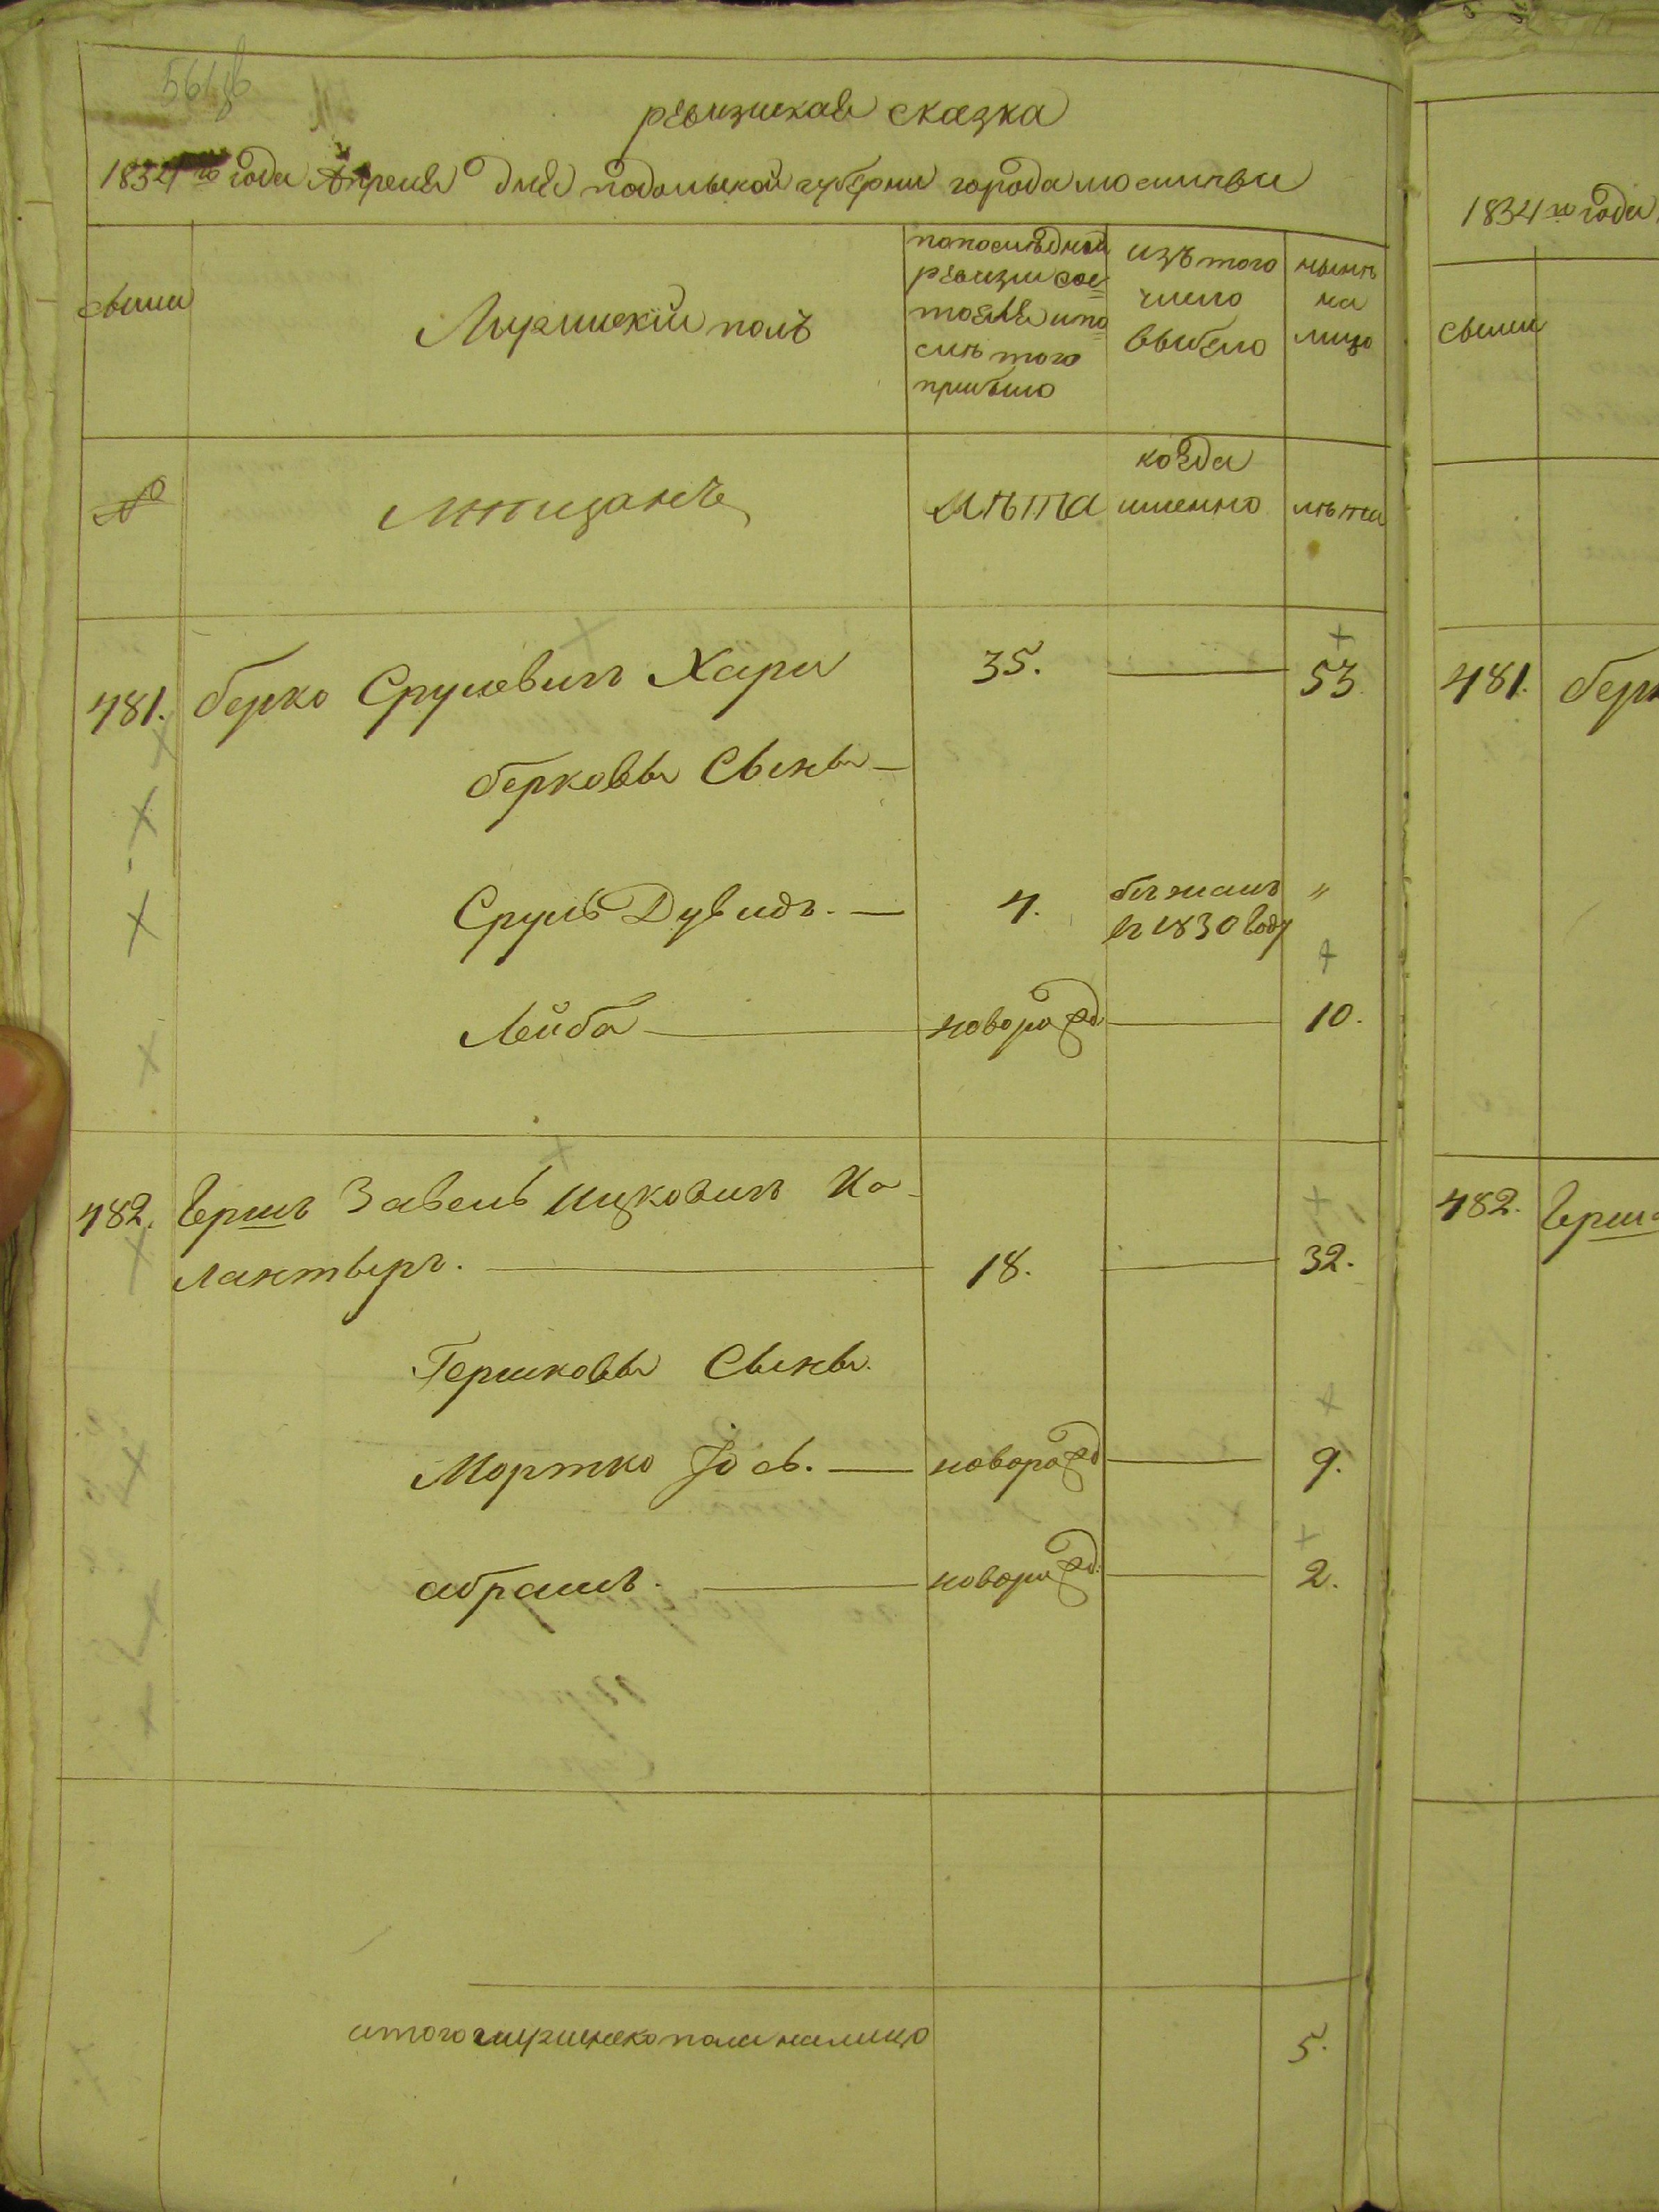 ревизская сказка
1834го года Апреля дня подольской губернии города
семьи
Мужиский полъ
попоследней
ревизии сос=
тояля и по=
слѣ того
прибыло
изъ того
число
выбыло
нынѣ
на
лицо
№
мѣщанъ
лѣта
когда
именно
лѣта
481. берко Срулевичъ Хари 35. 53.
берковы Сыны
Сруль Дувидъ. 4. бѣжалъ "
въ 1830 году
Лейба новорожд. 10.
482. Гершъ Завель Ицковичъ Ка
лантыръ. 18. 32.
Гершковы Сыны.
Мортко Iось. новорожд 9.
абрамъ. новорожд. 2.
итого мужинско пола налицо 5.
1834го года
семьи
481. берк
482. Герш